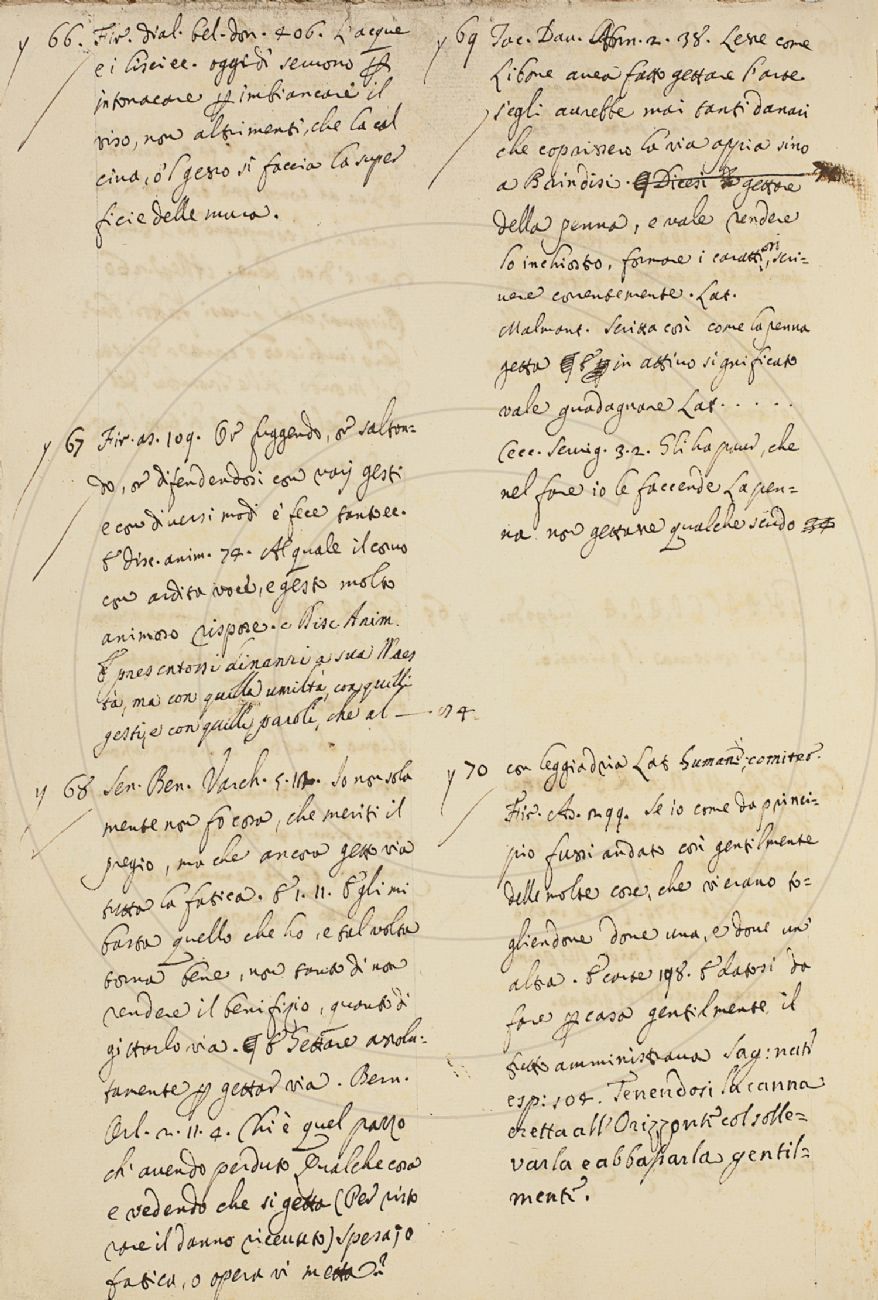 y 66. Fir. dial. bel. don. 406. L'acque
e i lisci ec. oggidì servono p
intonacare, p imbiancare il
viso, non altrimenti, che la cal
cina, o 'l gesso si faccia la super
ficie delle mura.
y 67 Fir. as. 109. Or fuggendo, or saltan=
do, or difendendosi con varj gesti
e con diversi modi e' fece tanto ec.
E disc. anim. 74. Al quale il corvo
con ardita voce, e gesto molto
animoso rispose. e Disc Anim.
E presentossi dinanzi a sua Maes
tà, ma con quella umiltà, con quelli
gesti, e con quelle parole, che al — 74
y 68 Sen. Ben. Varch. 5. 11. Io non sola
mente non fo cosa, che meriti il
pregio, ma che ancora getto via
tutta la fatica. E 1. 11. Egli mi
basta quello che ho, e tal volta
torna bene, non tanto di non
rendere il benifizio, quanto di
gittarlo via. E Gettare assolu=
tamente p gettar via. Bern.
Orl. 2. 11. 4. Chi è quel pazzo
ch' avendo perduto Qualche cosa
e vedendo che si getta (Per risto
rare il danno ricevuto) spesa, o
fatica, o opera vi metta?
y 69 Tac. Dav. Ann. 2. 38. Lesse come
Libone avea fatto gettare l'arte
s'egli avrebbe mai tanti danari
che coprissero la via appia sino
a Brindisi. Dicesi gettare
della penna, e vale rendere
lo inchiostro, formare i caratteri, scri=
vere correntemente. Lat.
Malmant. Scritta così come la penna
getta E in attivo significato
vale guadagnare Lat. . . . . .
Cecc. Servig. 3. 2. Gli ha paur, che
nel fare io le faccende La pen=
na non gettasse qualche scudo
y 70 con leggiadria Lat humane, comiter.
Fir. As. 299. Se io come da princi=
pio fussi andato così gentilmente
delle molte cose, che vi erano to=
gliendone dove una, e dove un'
altra. E carte 198. E datosi da
fare p casa gentilmente, il
tutto amministrava Sag: nat:
esp: 104. Tenendosi la canna
eretta all' Orizzonte col solle=
varla e abbassarla gentil=
mente.